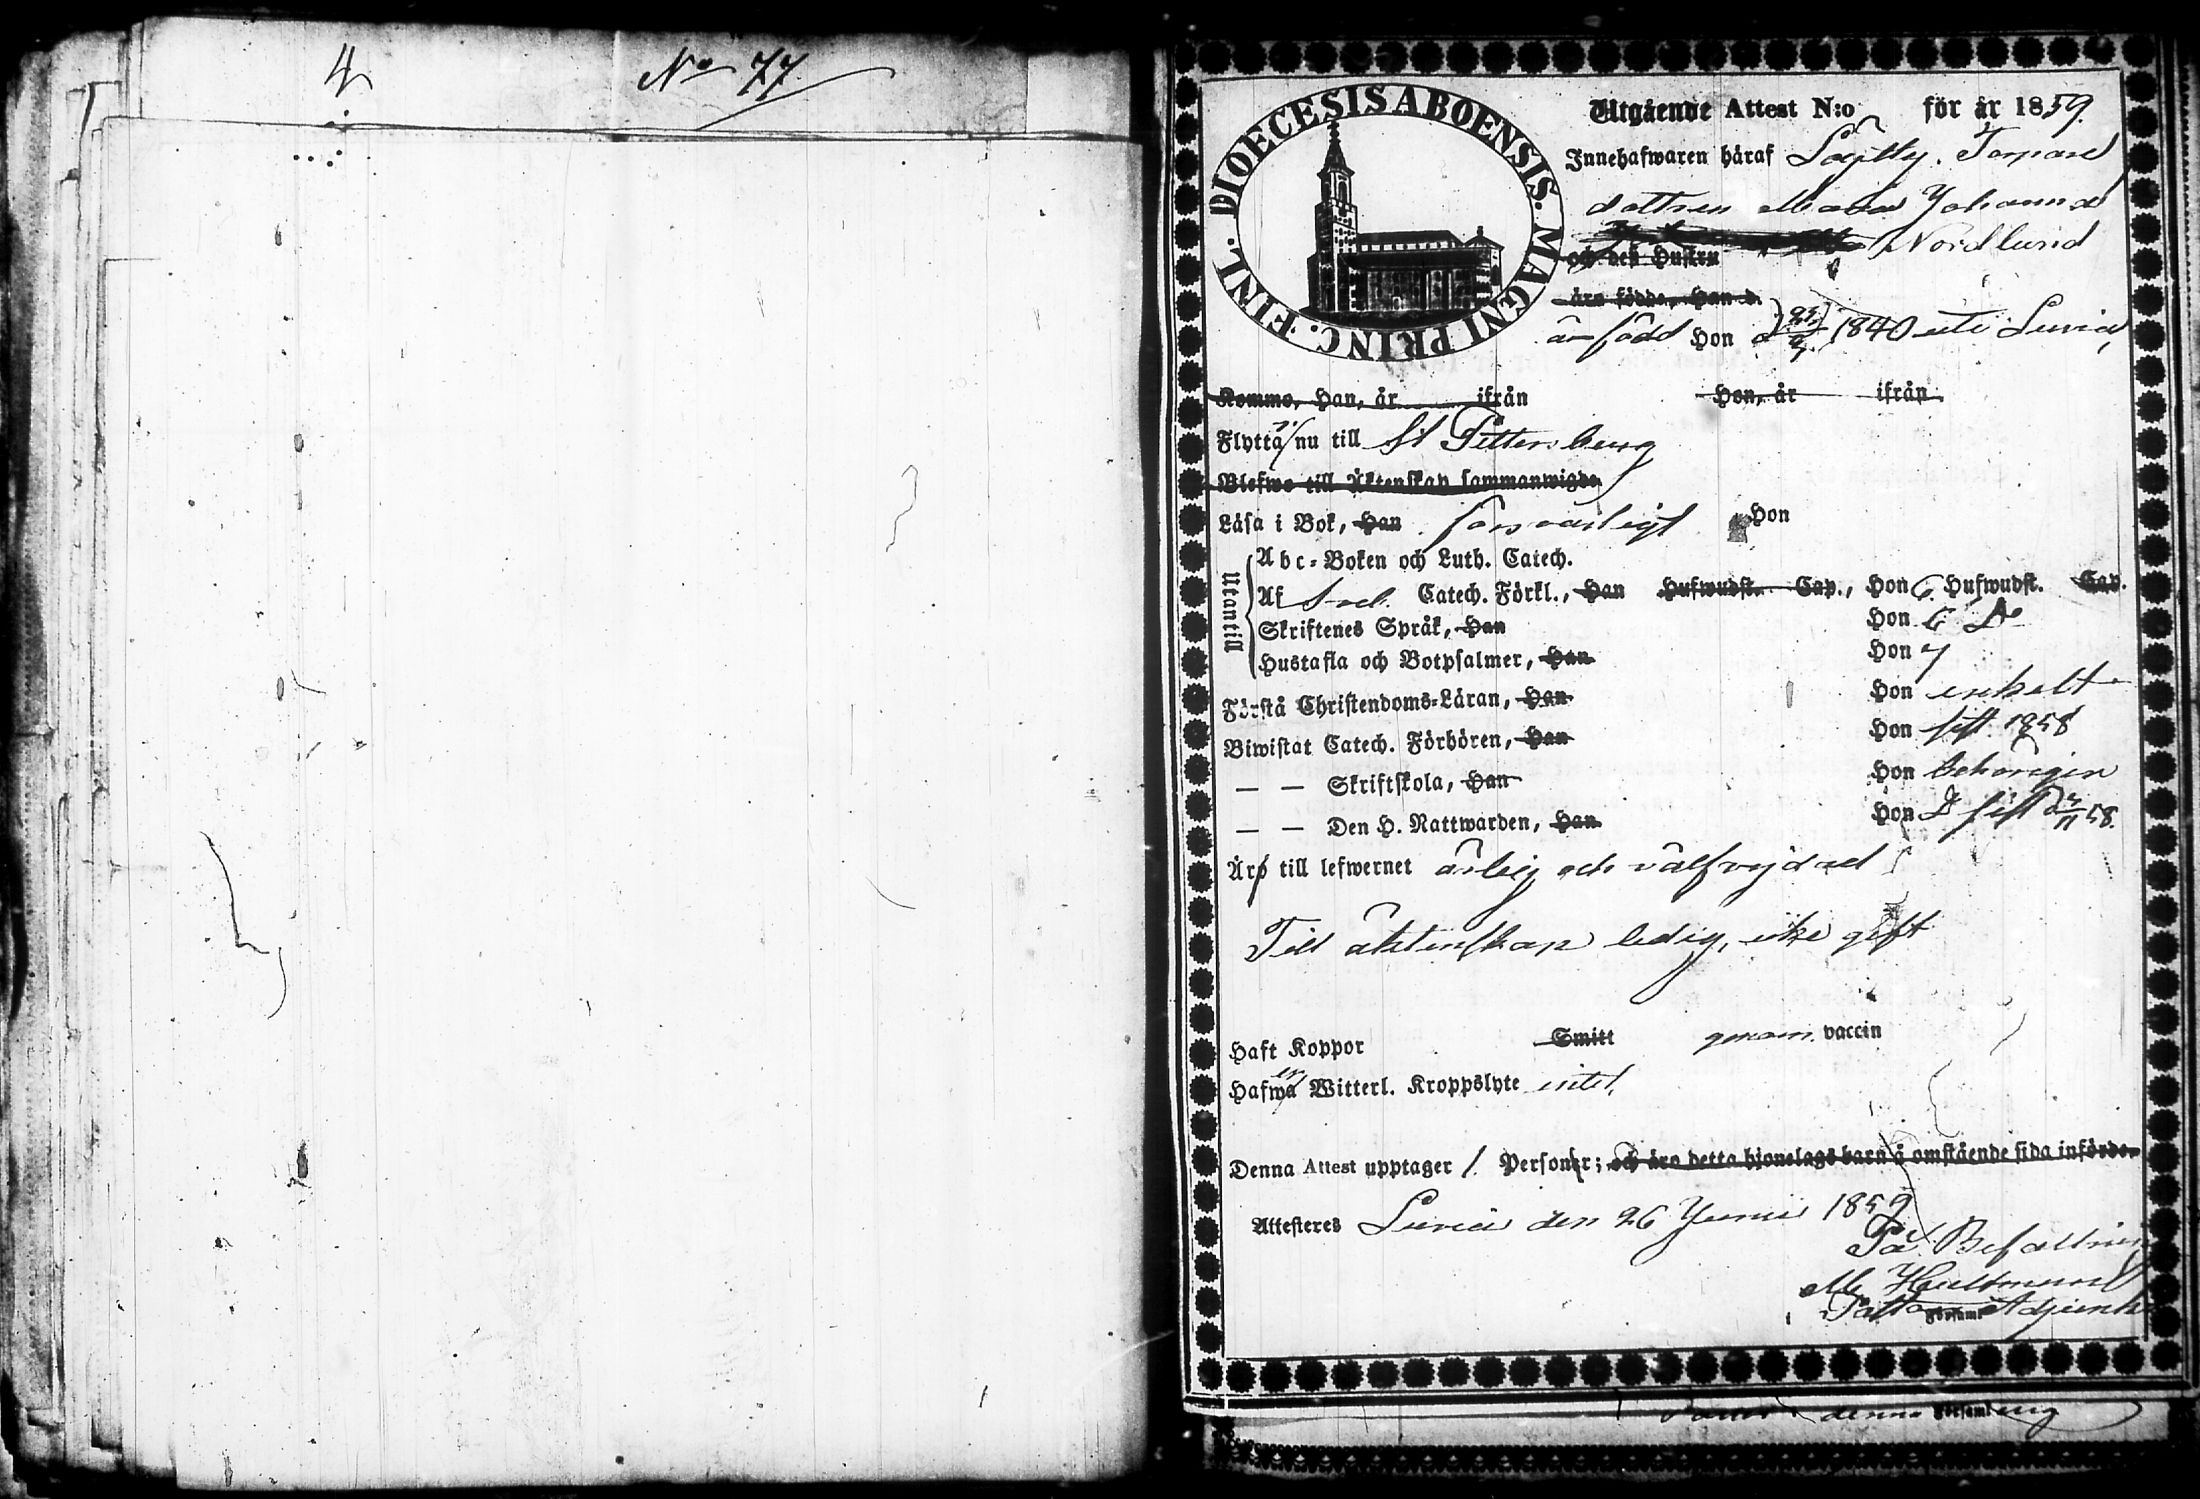 4
No 77.
DIOECESIS ABOENSIS. MAGNI PRINC. FINL.
Utgående Attest N:o för år 1859.
Innehafwaren häraf Torpare
dottren Maria Johanna
Nordlund
och des Hustru
äro födde, Han d.
är född Hon d 1840 uti Luvia,
Komme, Han, år ifrån Hon, år ifrån
Flytta nu till St Petersburg
Blefwo till Äktenskap sammanwigde
Läsa i Bok, Han försvarligt Hon
Utantill
Abc-Boken och Luth. Catech.
Af Sveb. Catech. Förkl., Han Hufwudst. Cap., Hon 6 Hufwudst. Cap.
Skriftenes Språk, Han Hon 6 Do
Hustafla och Botpsalmer, Han Hon 7
Förstå Christendoms-Läran, Han Hon enkelt
Biwistat Catech. Förhören, Han Hon sist 1858
— — Skriftskola, Han Hon behörigen
— — Den H. Nattwarden, Han Hon sist 58.
Äro till lefwernet ärlig och välfrejdad
Till äktenskap ledig, icke gift
Haft Koppor Smitt genom vaccin
Hafwa Witterl. Kroppslyte intet.
Denna Attest upptager 1 Personer; och äro detta hjonelags barn å omstående sida införde.
Attesteres Luvia den 26 Junii 1859
På Befallning
M. Hultmund
Adjunkt
Församl
denna Församling